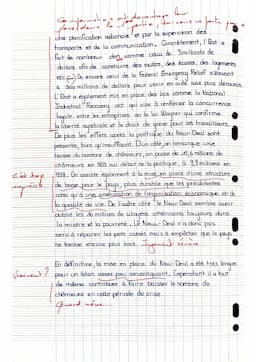 une planification nationale et par la supervision des
transports et de la communication. Concrètement, l'État a
fait de nombreux don comme celui de 3 milliards de
dollars afin de construire des routes, des écoles, des logements
etc. ou encore celui de la Federal Emergency Relief s'élevant
à 500 millions de dollars pour venir en aide aux plus démunis.
L'État a également mis en place des lois comme la National
Industrial Recovery act qui vise à renforcer la concurrence
loyale entre les entreprises ou la loi Wagner qui confirme
la liberté syndicale et le droit de grève pour les travailleurs.
De plus les effets après la politique du New-Deal sont
présents, bien qu'insuffisant. D'un côté, on remarque une
baisse du nombre de chômeurs, on passe de millions de
chômeurs en 1933 au début de la politique, à millions en
193 . On assiste également à la mise en place d'une structure
de base pour le pays, plus durable que les précédentes
ainsi qu'à une amélioration de l'organisation économique et de
la qualité de vie. De l'autre côté le New-Deal semble avoir
oublié les 20 millions de citoyens américains toujours dans
la misère et la pauvreté. Le New-Deal n'a donc pas
servi à réparer les pots cassés mais à empêcher que le pays
ne tombe encore plus bas. Jugement sévère
c'est trop
imprécis
En définitive, la mise en place du New-Deal a été très longue
pour un bilan assez peu convainquant. Cependant il a tout
de même contribuer à faire baisser le nombre de
chômeurs en cette période de crise.
vraiment?
Quand même